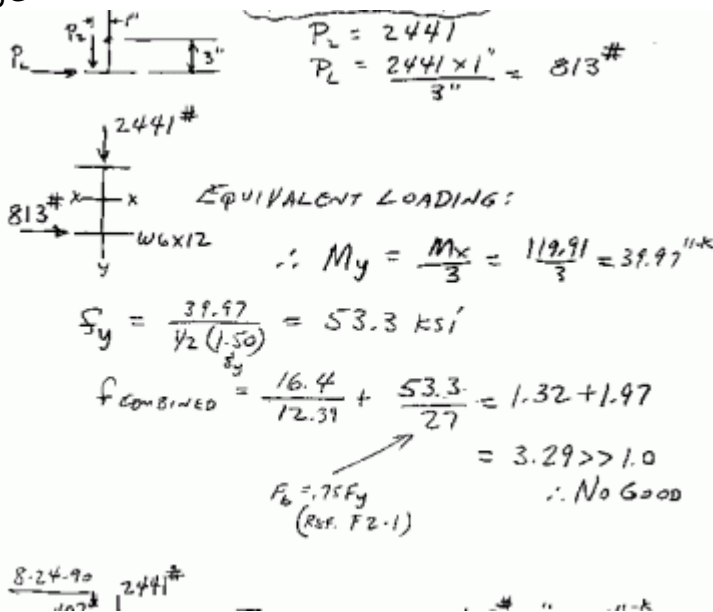 P₂ = 2441
P₂ 1"
P_L 3"
P_L = 2441 x 1" / 3" = 813#
2441#
x x
EQUIVALENT LOADING:
813#
W6x12
y
∴ My = Mx/3 = 119.91/3 = 39.97"-K
fy = 39.97 / ½ (1.50) = 53.3 ksi
Sy
f COMBINED = 16.4/12.39 + 53.3/27 = 1.32 + 1.97
= 3.29 >> 1.0
∴ NO GOOD
F_b = .75 Fy
(REF. F2-1)
8-24-90
2441#